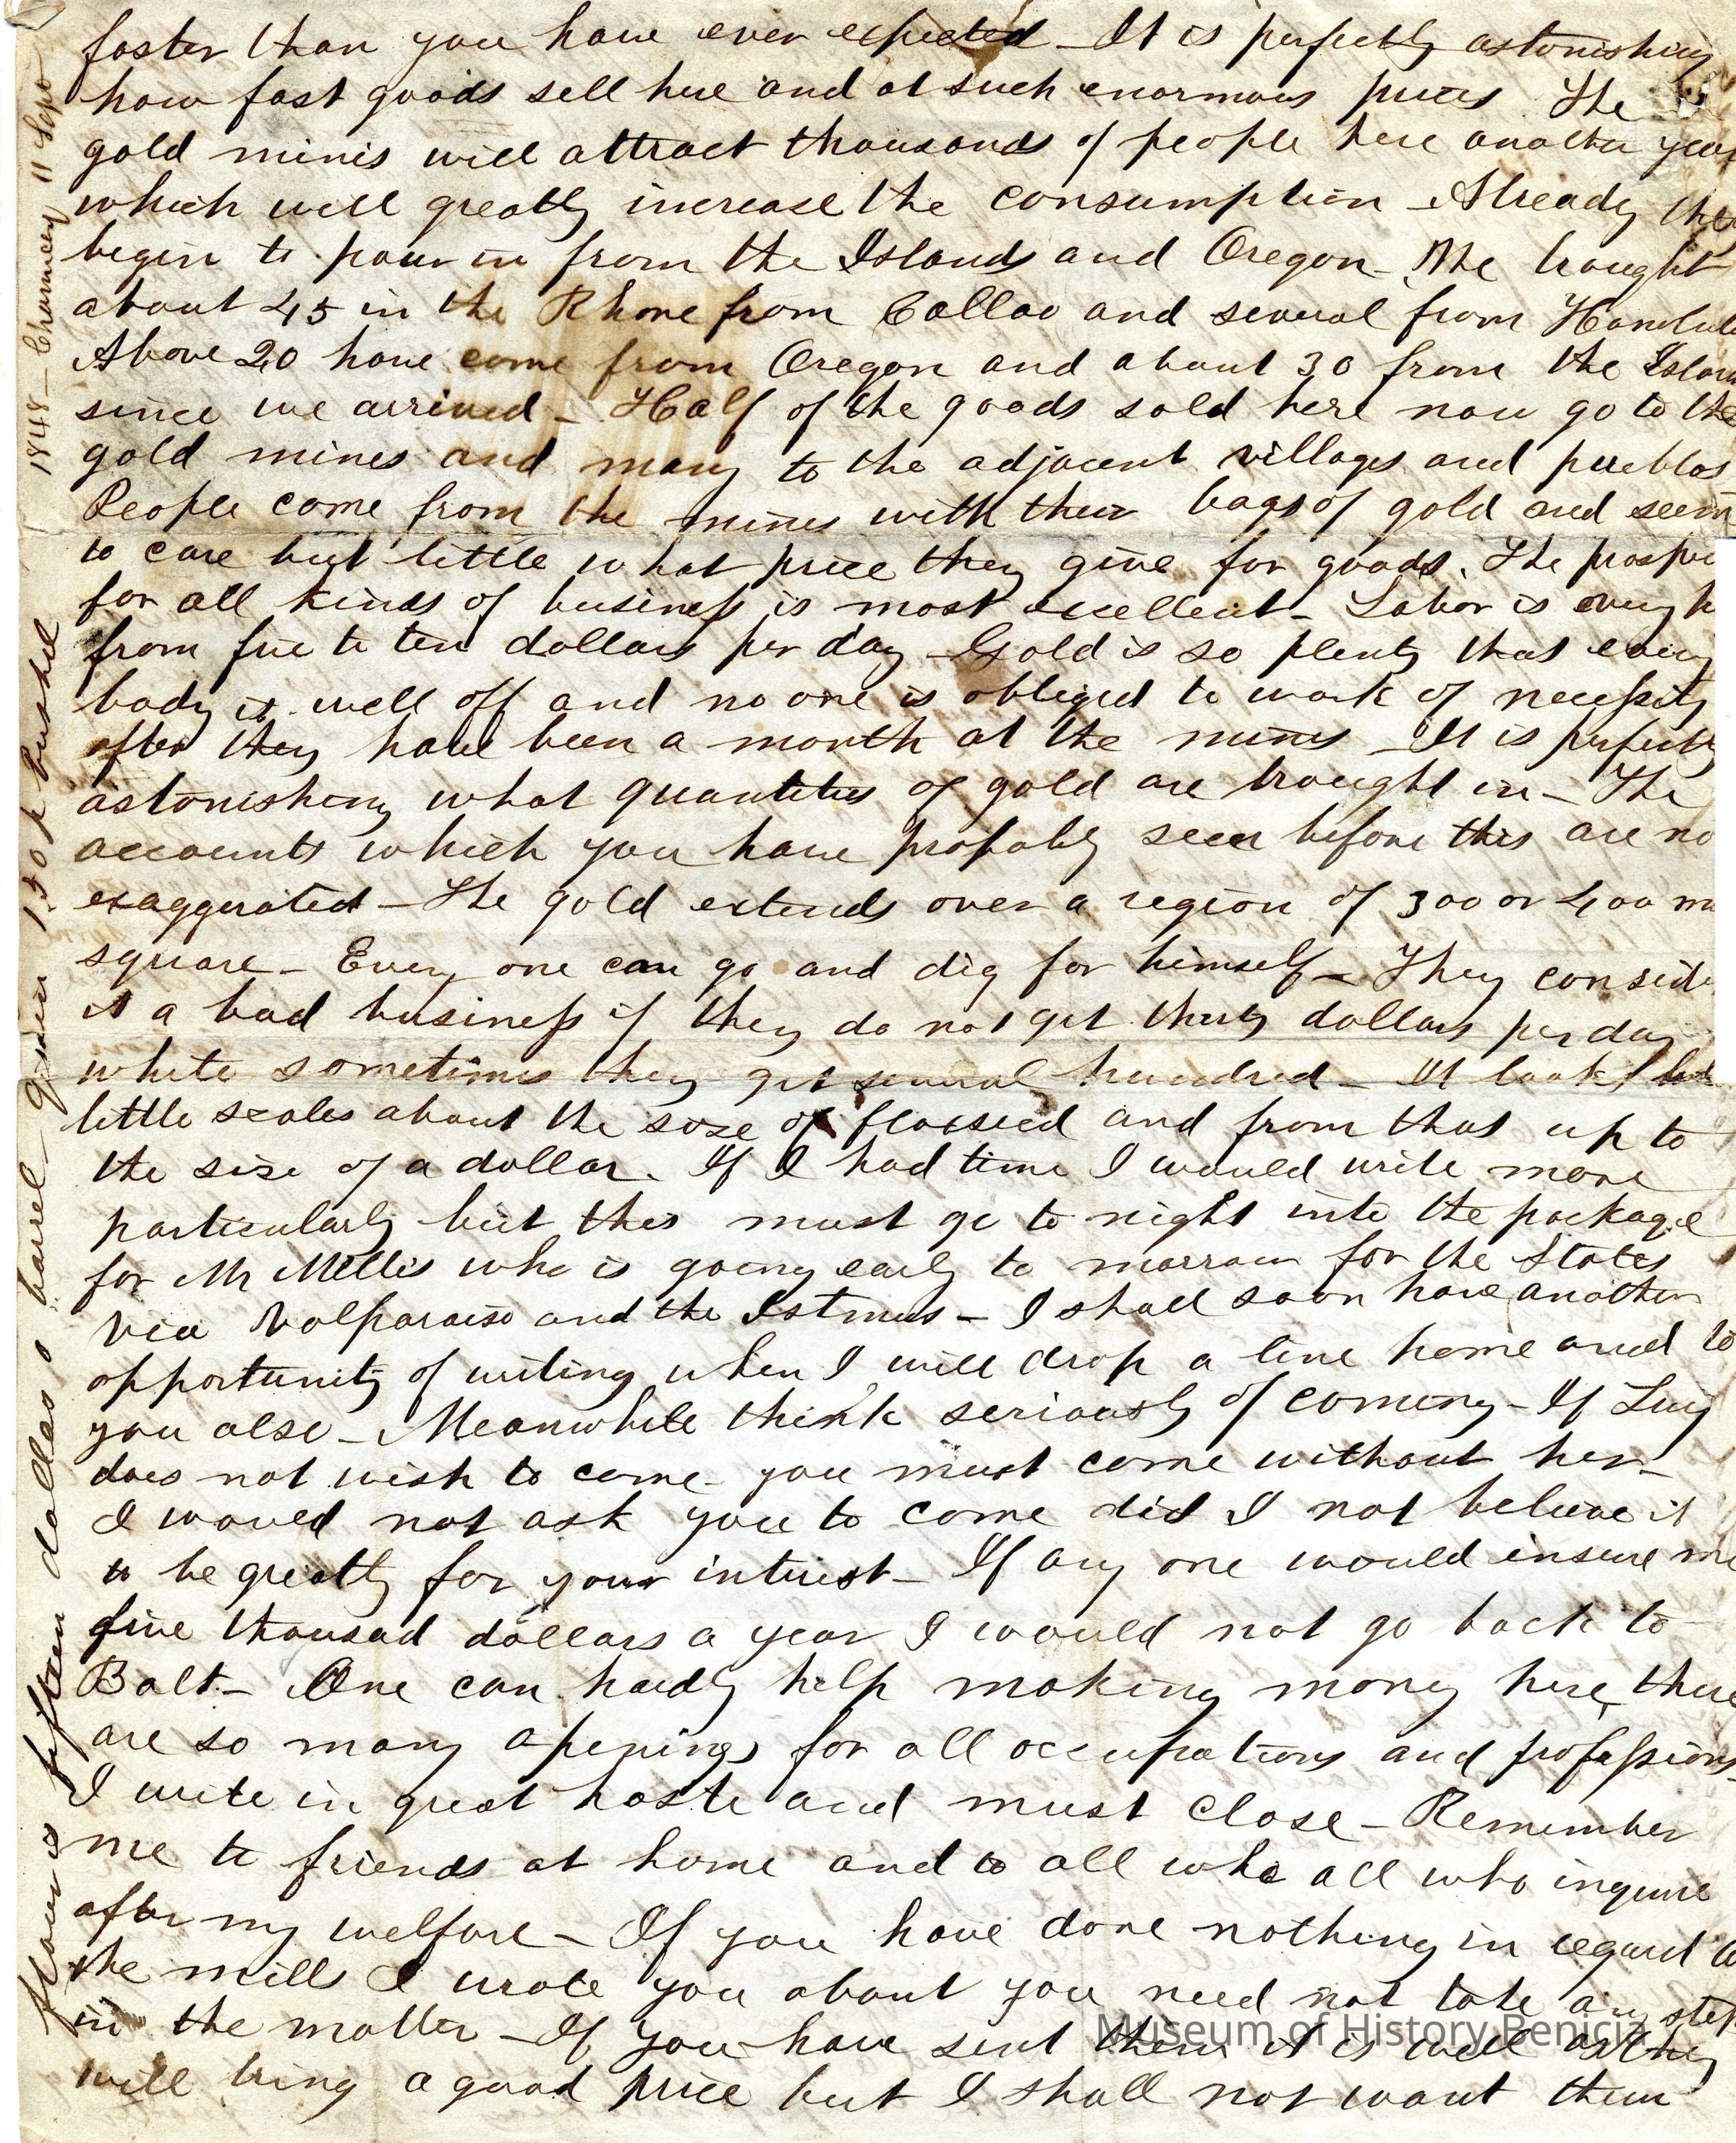 foster than you have ever expected - It is perfectly astonishing
how fast goods sell here and at such enormous prices The
gold minis will attract thousands of people here another year
which will greatly increase the consumption - Already they
begin to pour in from the Islands and Oregon - We brought
about 45 in the Rhone from Callao and several from Honolulu
Above 20 have come from Oregon and about 30 from the Islan
since we arrived - Half of the goods sold here now go to the
gold mines and many to the adjacent villages and pueblos
People come from the mines with their bags of gold and seem
to care but little what price they give for goods. The prospe
for all kinds of business is most excellent - Labor is very h
from five to ten dollars per day - Gold is so plenty that every
body is well off and no one is obliged to work of necessity
after they have been a month at the mines - It is perfectly
astonishing what quantities of gold are brought in - The
accounts which you have probably seen before this are no
exaggerated - The gold extends over a region of 300 or 400 mi
square - Every one can go and dig for himself - They conside
it a bad business if they do not get thirty dollars per day
while sometimes they get several hundred - It looks
little scales about the size of flaxseed and from that up to
the size of a dollar. If I had time I would write more
particularly but this must go to night into the package
for Mr Mellis who is going early to morrow for the States
via Valparaiso and the Istmus - I shall soon have another
opportunity of writing when I will drop a line home and to
you also - Meanwhile think seriously of coming - If Lucy
does not wish to come you must come without her -
I would not ask you to come did I not believe it
to be greatly for your interest - If any one would insure me
five thousad dollars a year I would not go back to
Balt - One can hardly help making money here, there
are so many openings for all occupations and professions -
I write in great haste and must close - Remember
me to friends at home and to all who all who inquire
after my welfare - If you have done nothing in regard to
the mills I wrote you about you need not take any step
in the matter - If you have sent them it is well as they
will bring a good price but I shall not want them
flour is fifteen dollars a barrel - 1.50 p bushel
1848 - Chauncey 11 Sept
Museum of History Benicia